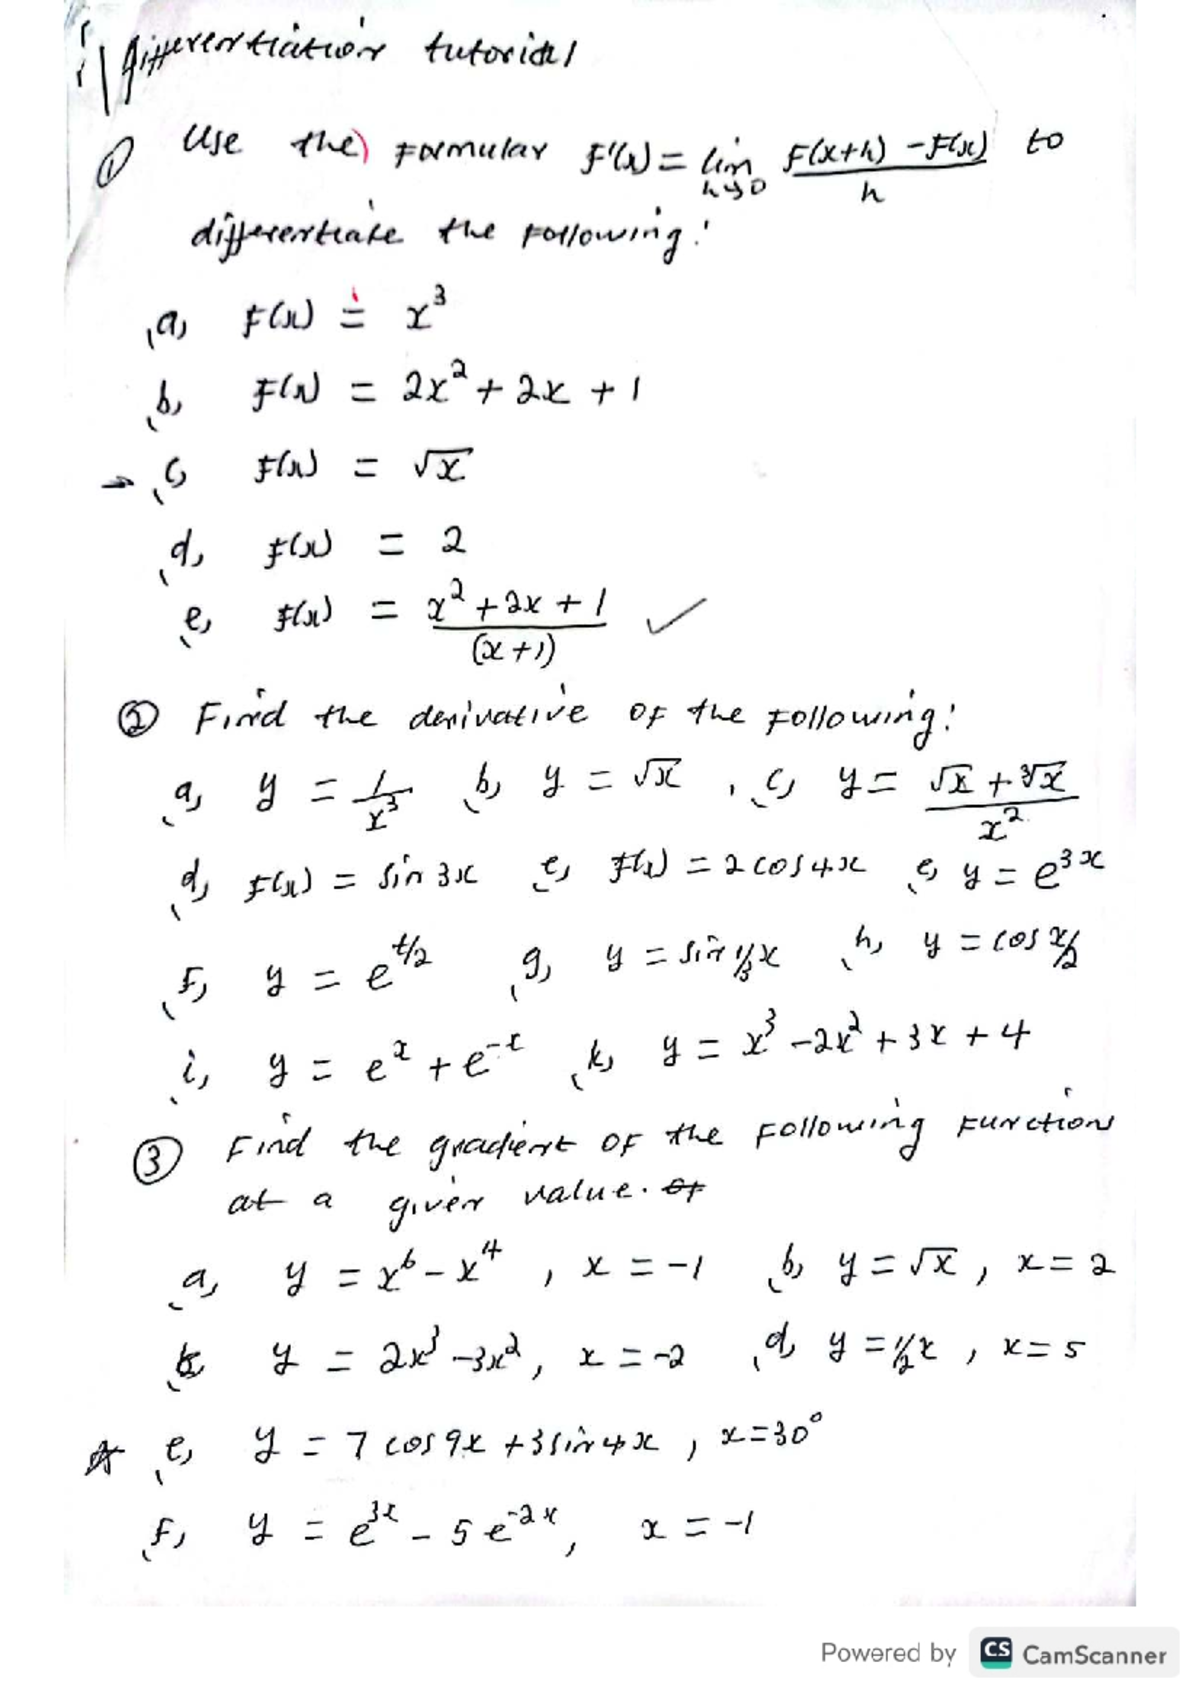 differentiation tutorial
① Use the Formular F'(x) = lim h→0 F(x+h) - F(x) / h to
differentiate the following:
a, F(x) = x³
b, F(x) = 2x² + 2x + 1
→ c, F(x) = √x
d, F(x) = 2
e, F(x) = x² + 2x + 1 / (x+1) ✓
② Find the derivative of the following:
a, y = 1/x³ b, y = √x , c, y = √x + ∛x / x²
d, F(x) = sin 3x e, F(x) = 2 cos 4x e, y = e³ˣ
F, y = e^t/2 g, y = sin 1/3 x h, y = cos x/2
i, y = eˣ + e⁻ᵗ k, y = x³ - 2x² + 3x + 4
③ Find the gradient of the following function
at a given value.
a, y = x⁶ - x⁴ , x = -1 b, y = √x , x = 2
y = 2x³ - 3x² , x = -2 d, y = 1/2 x , x = 5
e, y = 7 cos 9x + 3 sin 4x , x = 30°
F, y = e³ˣ - 5e⁻²ˣ , x = -1
Powered by CS CamScanner